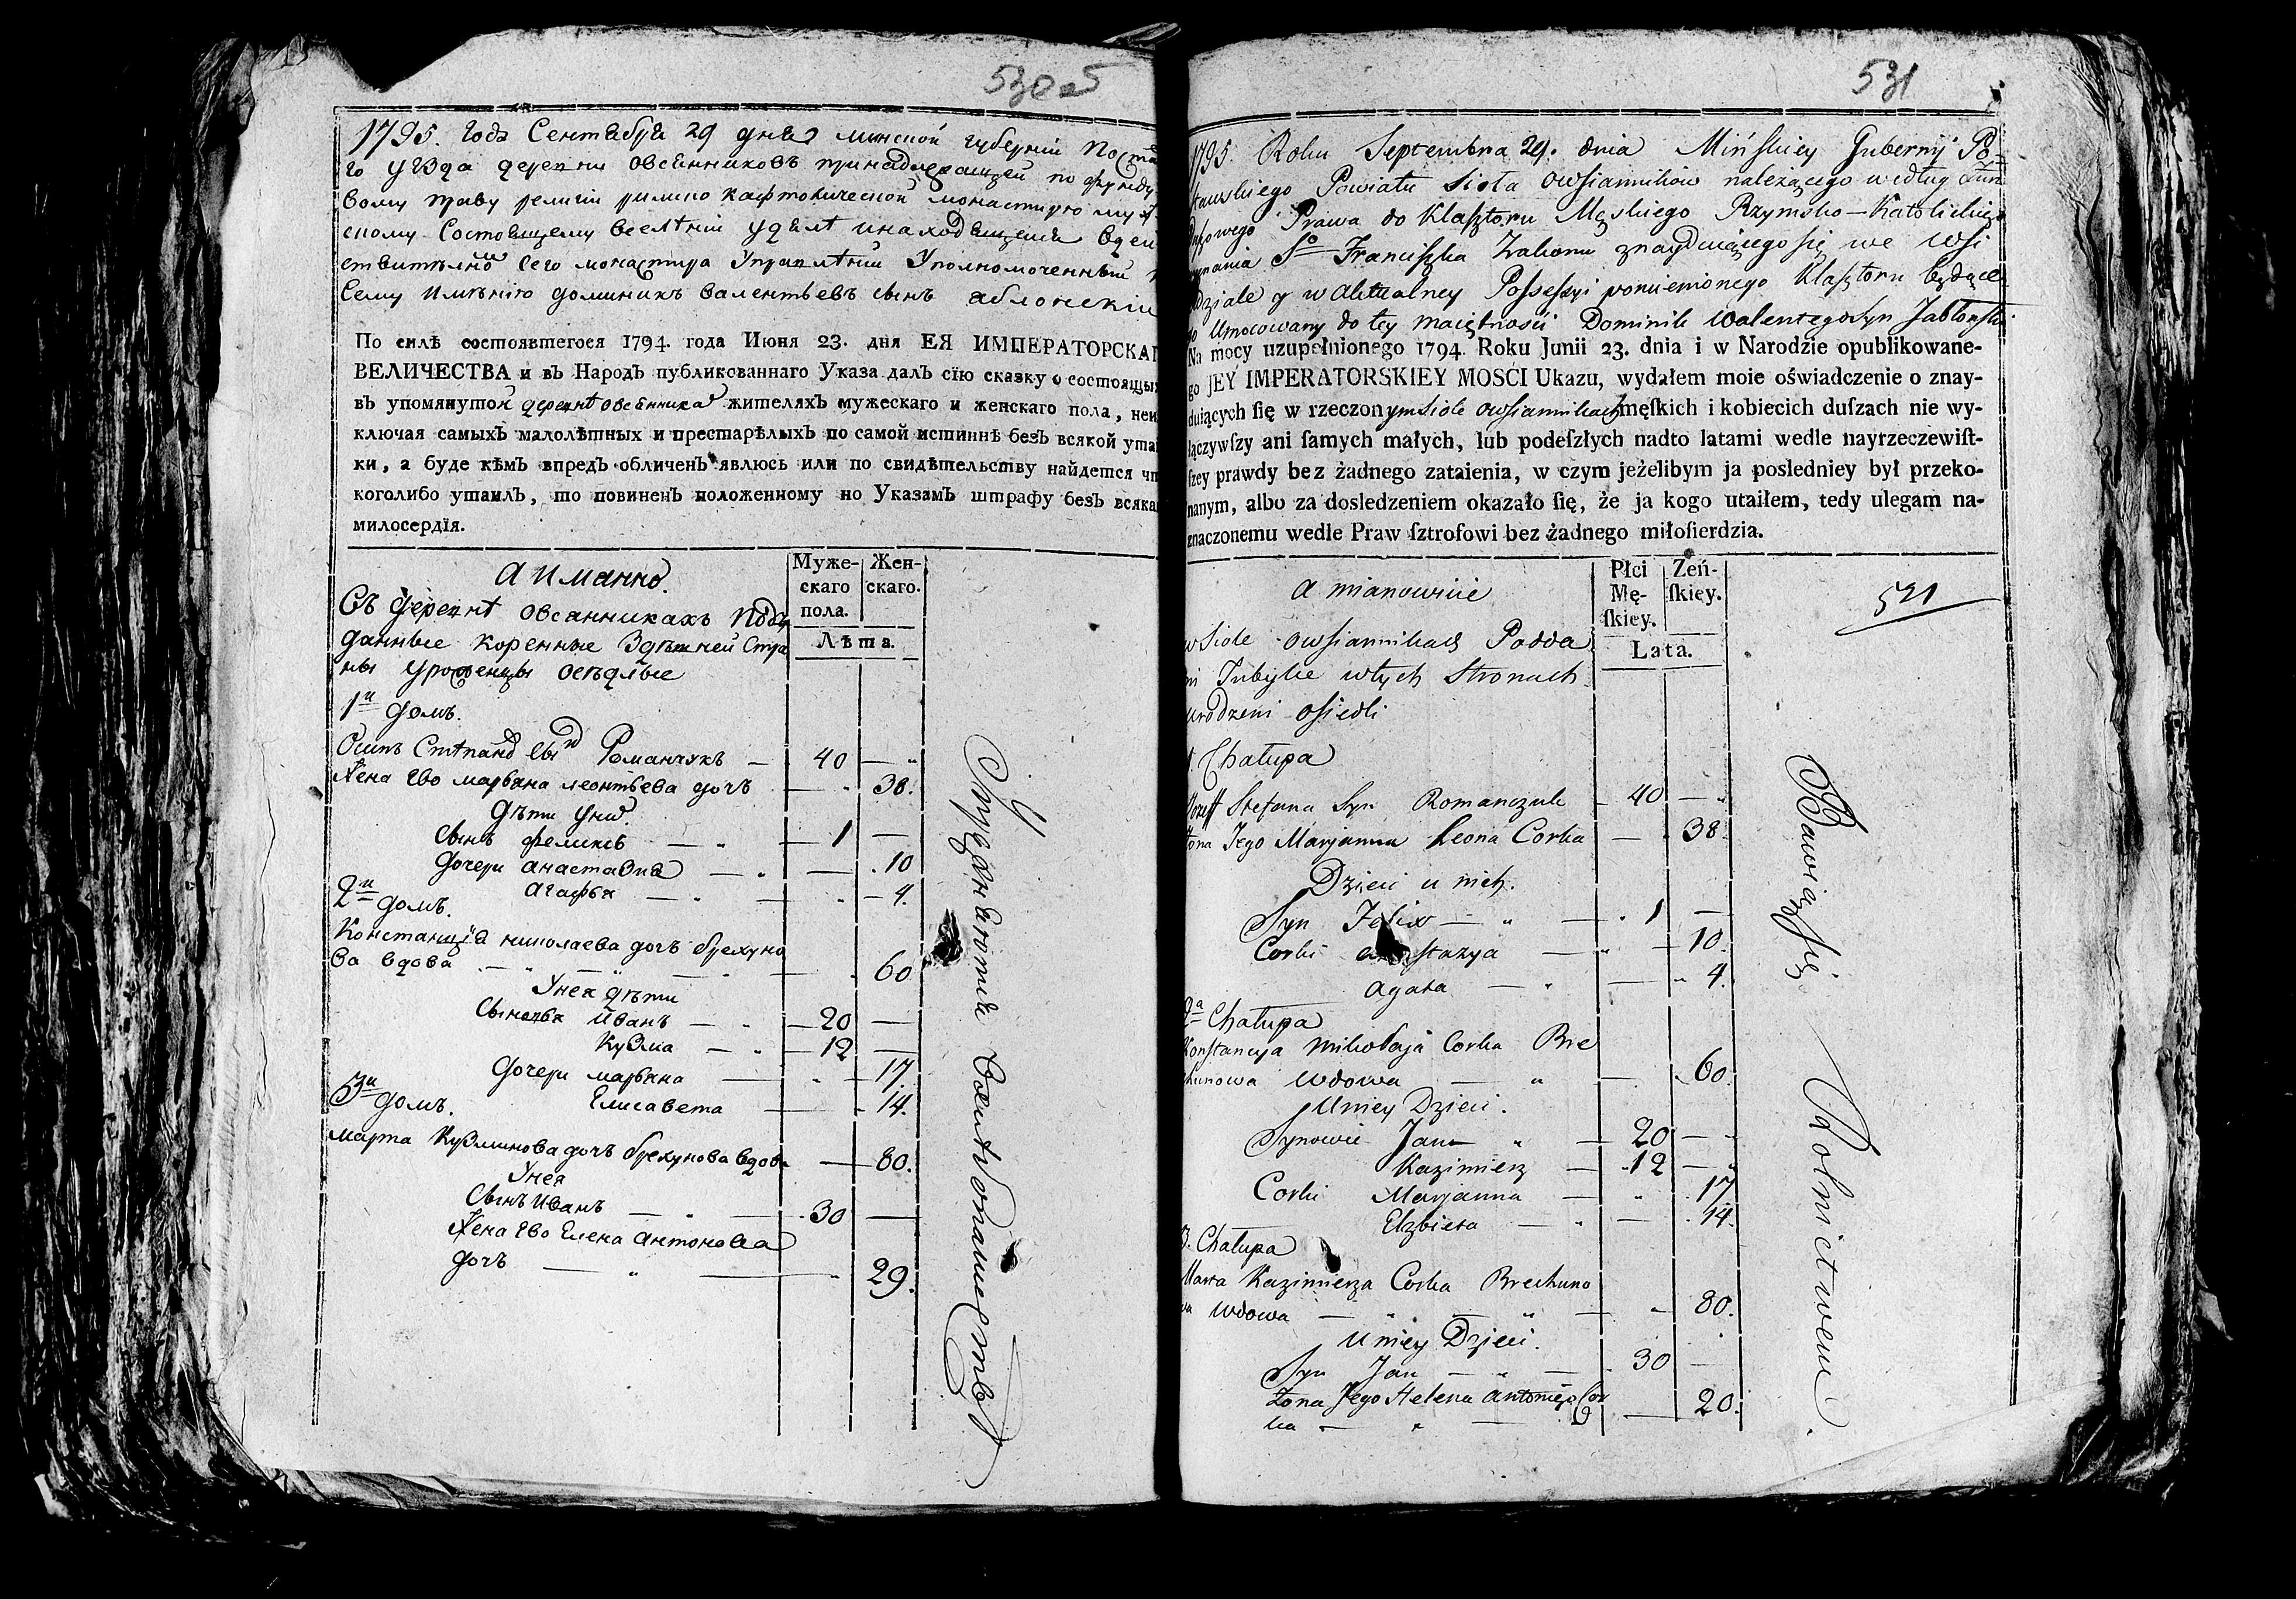 530об
1795. Года Сентября 29 дня минской губерніи Поста
го уезда деревни овсянниковъ принадлежащей по фунду
вому праву религіи римско кафтолической монастырю муж
скому Состоящему вселѣніи уделѣ инаходящемся вдей
ствителной сего монастира Управлѣніи Уполномоченный
Сему имѣнію доминикъ валентьевъ сынъ аблонскій
По силѣ состоявшегося 1794. года Июня 23. дня ЕЯ ИМПЕРАТОРСКАГ
ВЕЛИЧЕСТВА и въ Народъ публикованнаго Указа далъ сїю сказку о состоящих
въ упомянутой деревнѣ овсянника жителяхъ мужескаго и женскаго пола, неис
ключая самыхъ малолѣтныхъ и престарѣлыхъ по самой истиннѣ безъ всякой утай
ки, а буде кѣмъ впредь обличенъ явлюсь или по свидѣтельству найдется чт
коголибо утаилъ, то повиненъ положенному по Указамъ штрафу безъ всяка
милосердїя.
а имянно.
Муже-
скаго
пола.
Жен-
скаго.
Лѣта.
Съ деревнѣ овсанникахъ Подъ
данные коренные Здѣшней Стра
ны уроженцы осѣдлые
1й домъ.
Осипъ Стѣпановъ сынъ Романчукъ — 40 —
Жена Ево марьяна леонтьева дочь — 38.
Дѣти у нихъ.
Сынъ феликсъ — 1 —
Дочери анастазия — 10
агафья — 4.
2й домъ.
Констанція николаева дочь брехуно
ва вдова — 60
Унея дѣти
Сыновья иванъ — 20 —
Кузма — 12 —
Дочери марьяна — 17.
Елисавета — 14.
3й домъ.
марта Кузминова дочь брехунова вдова — 80.
Унея
Сынъ иванъ — 30 —
Жена Ево Елена антонова
дочь — 29.
Упражняются Хлебопашествомъ
531
1795. Roku Septembra 29. dnia Mińskiey Gubernij Po=
stawskiego Powiatu Sioła Owsiannikow należącego według Fun
duszowego Prawa do Klasztoru Męskiego Rzymsko-Katolickiego
S<sup>o</sup> Franciszka Zakonu znayduiącego się we Wsi
Udziale y w Aktualney Possessyi pomienionego Klasztoru będące
go Umocowany do tey maiętności Dominik Walentego Syn Jabłonski
Na mocy uzupełnionego 1794. Roku Junii 23. dnia i w Narodzie opublikowane-
go JEY IMPERATORSKIEY MOSĆI Ukazu, wydałem moie oświadczenie o znay-
duiących ſię w rzeczonym Siole Owsiannikach męſkich i kobiecich duſzach nie wy-
łączywſzy ani ſamych małych, lub podeſzłych nadto latami wedle nayrzeczewiſt-
ſzey prawdy bez żadnego zataienia, w czym jeżelibym ja posledniey był przeko-
nanym, albo za dosledzeniem okazało ſię, że ja kogo utaiłem, tedy ulegam na-
znaczonemu wedle Praw ſztrofowi bez żadnego miłoſierdzia.
a mianowicie
Płci
Mę-
ſkiey.
Zeń-
ſkiey.
Lata.
531
w Siole Owsiannikach Podda
ni Tubylce w tych Stronach
urodzeni osiedli
1. Chałupa
Jozeff Stefana Syn Romanczuk — 40 —
Zona Jego Maryanna Leona Corka — 38.
Dzieci u nich.
Syn Felix — 1 —
Corki Anastazya — 10.
Agata — 4.
2<sup>a</sup> Chałupa
Konstancya Mikołaja Corka Bre
chunowa Wdowa — 60.
U niey Dzieci.
Synowie Jan — 20 —
Kazimierz — 12 —
Corki Maryanna — 17.
Elzbieta — 14.
3. Chałupa
Marta Kazimierza Corka Brechuno
wa Wdowa — 80.
U niey Dzieci.
Syn Jan — 30 —
Zona Jego Helena Antoniego Cor
ka — 20.
Bawią się Rolnictwem.